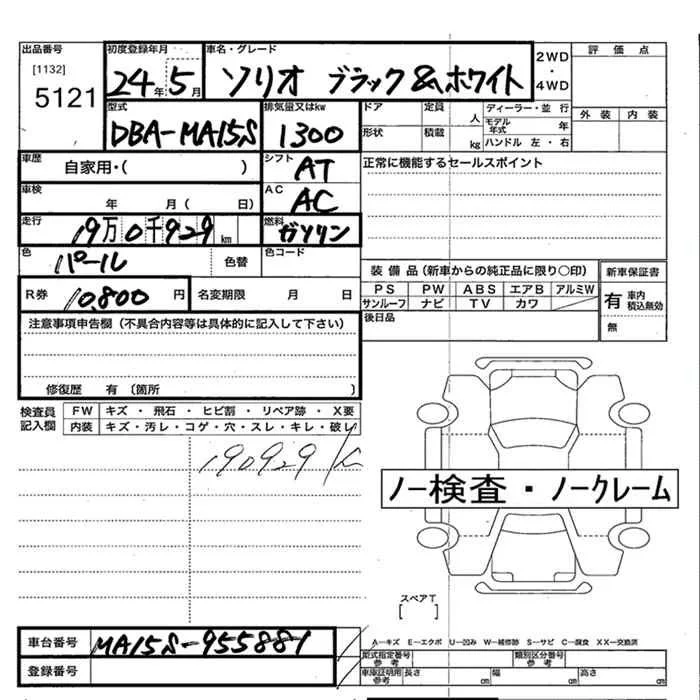 出品番号 初度登録年月 車名・グレード 2WD 評価点
[1132]
5121 24年5月 ソリオ ブラック&ホワイト ・4WD 外装 内装
型式 排気量又はkw ドア 定員 人 ディーラー・並 行
DBA-MA15S 1300 形状 積載 kg モデル年式 年
ハンドル 左・右
車歴 自家用・( ) シフト AT 正常に機能するセールスポイント
車検 年 月( 日) AC AC
走行 19万0千929km 燃料 ガソリン
色 パール 色替 色コード
装備品(新車からの純正品に限り○印) 新車保証書
R券 10,800円 名変期限 月 日
PS PW ABS エアB アルミW 有 車内積込無効
サンルーフ ナビ TV カワ
後日品 無
注意事項申告欄(不具合内容等は具体的に記入して下さい)
修復歴 有〔箇所 〕
検査員記入欄 FW キズ・飛石・ヒビ割・リペア跡・X要
内装 キズ・汚レ・コゲ・穴・スレ・キレ・破レ
190929
ノー検査・ノークレーム
スペアT
[ ]
車台番号 MA15S-955881
A-キズ E-エクボ U-凹み W-補修跡 S-サビ C-腐食 XX-交換済
型式指定番号 参考 類別区分番号 参考
登録番号 車庫証明用 参考 長さ cm 幅 cm 高さ cm